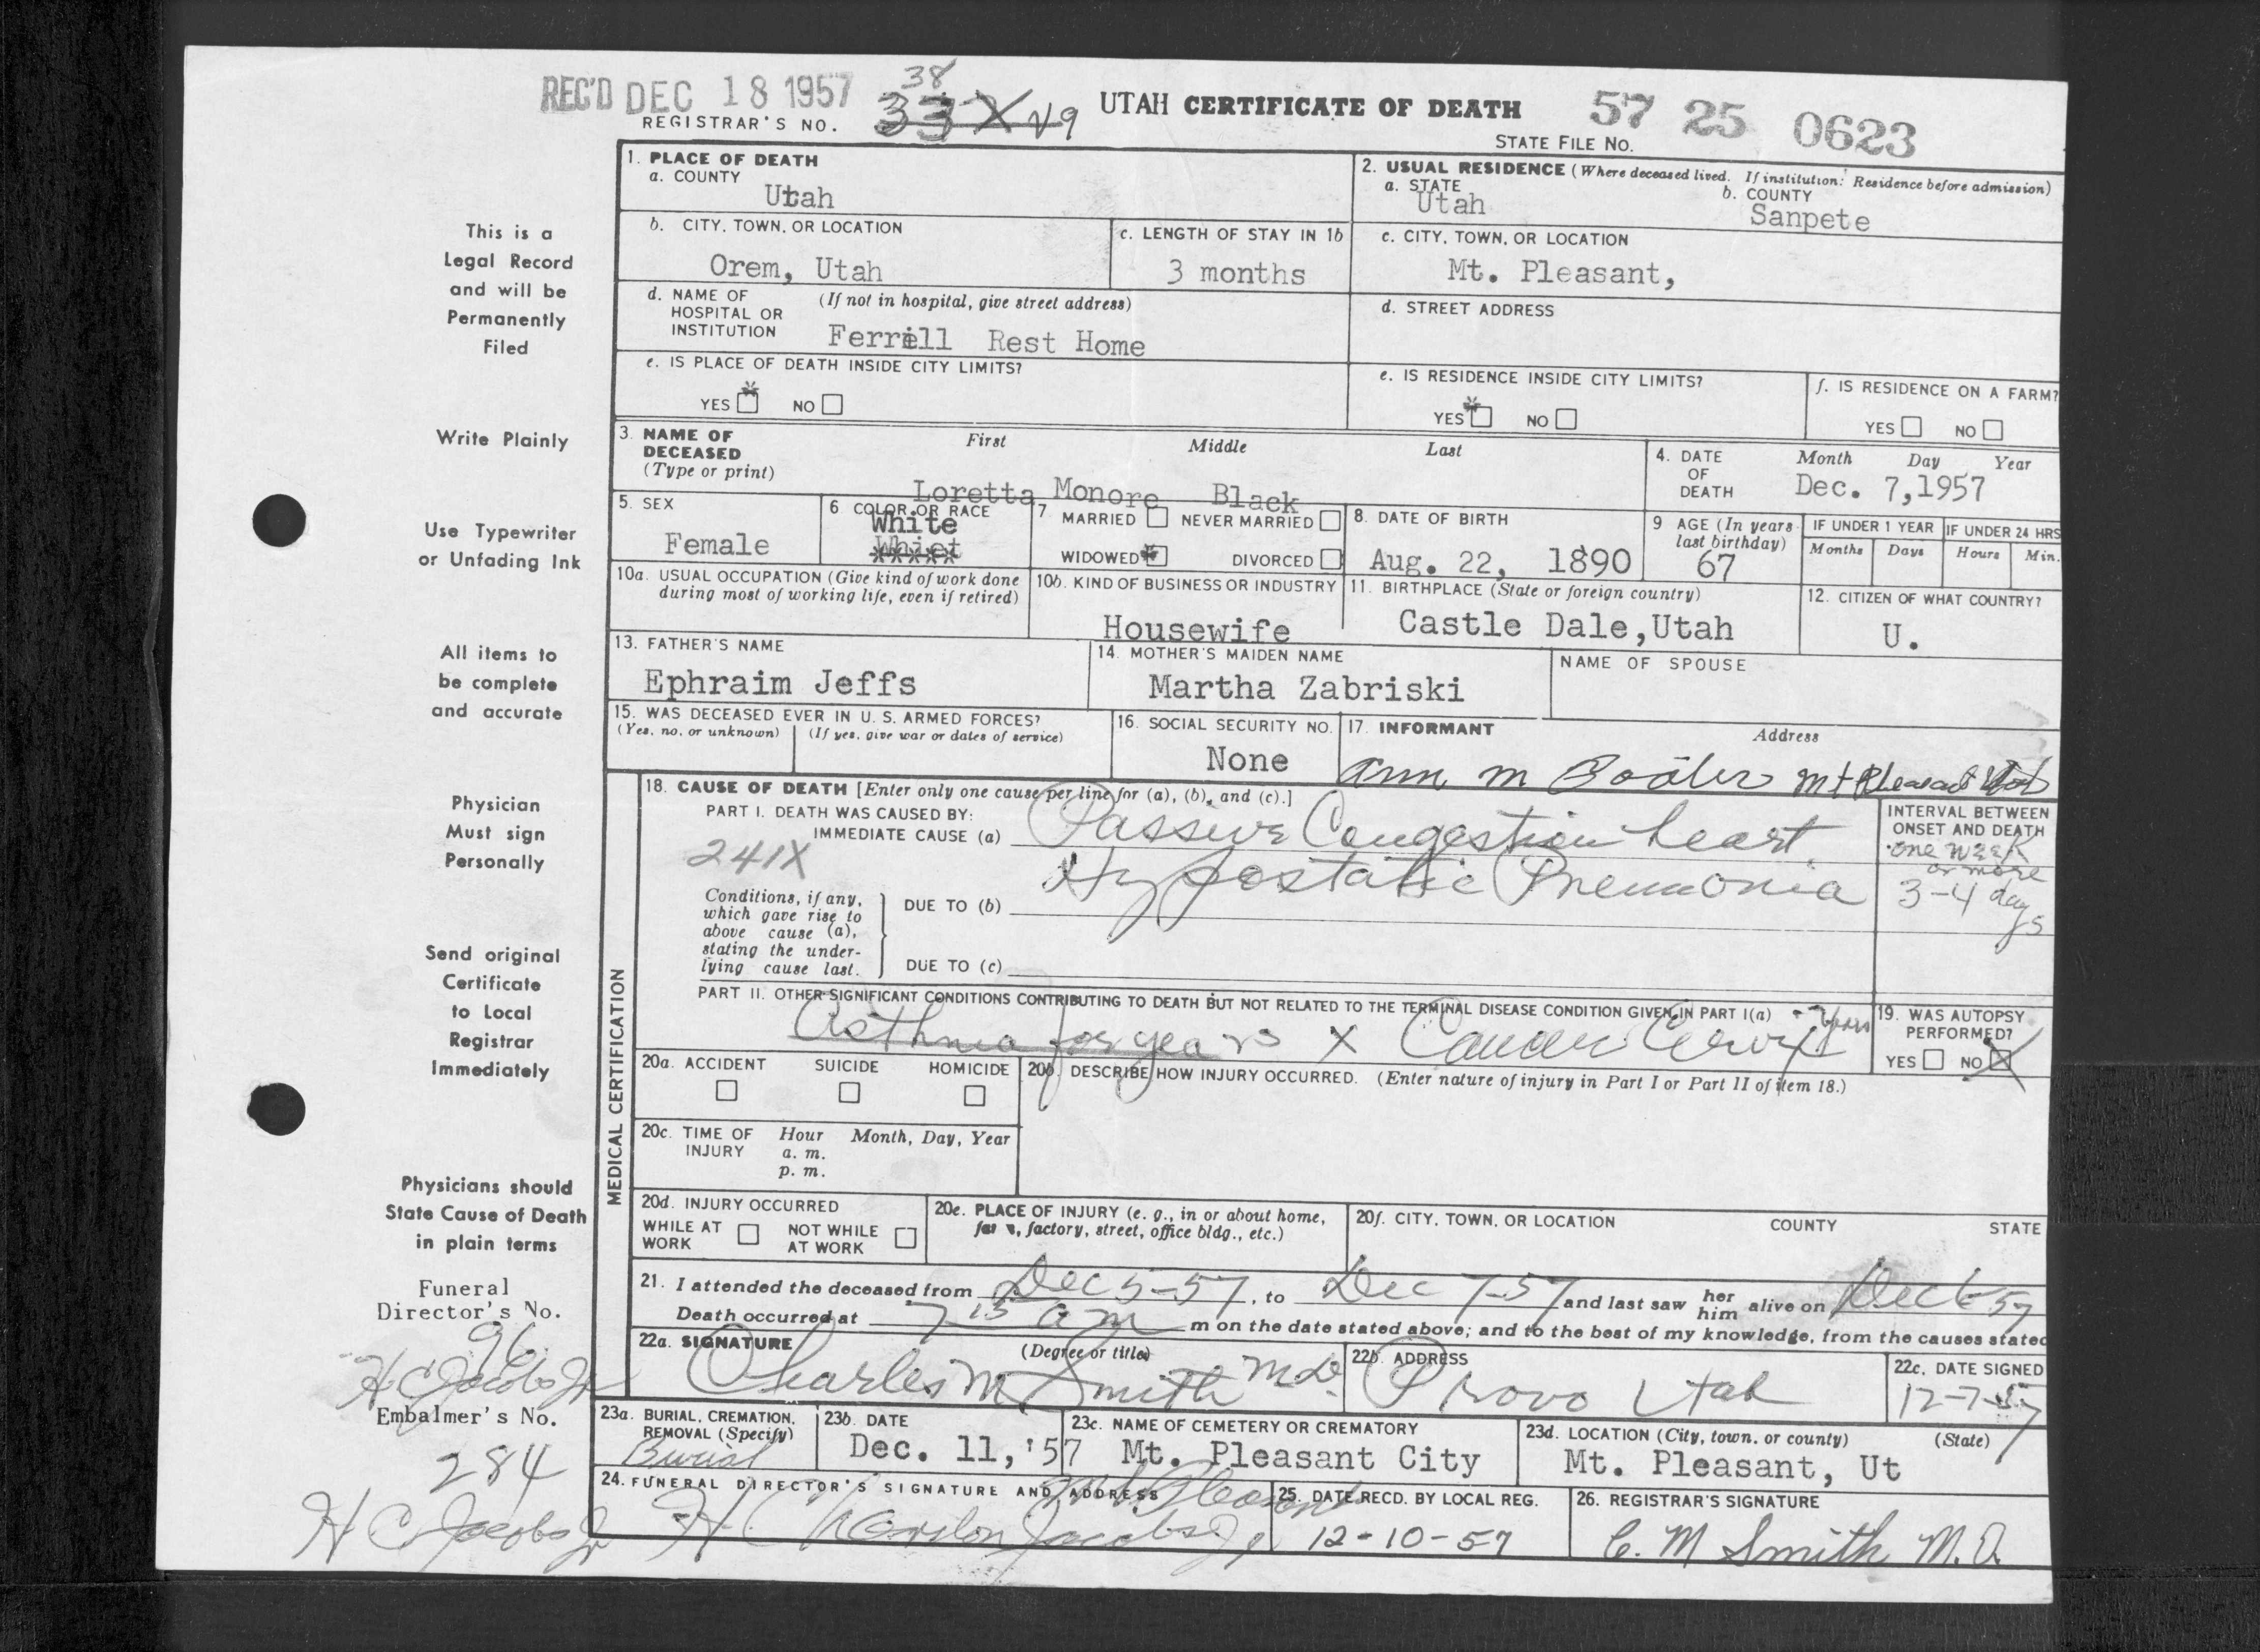 REC'D DEC 18 1957
38
REGISTRAR'S NO. 33 X V9
UTAH CERTIFICATE OF DEATH
57 25 0623
STATE FILE NO.
This is a
Legal Record
and will be
Permanently
Filed
Write Plainly
Use Typewriter
or Unfading Ink
All items to
be complete
and accurate
Physician
Must sign
Personally
Send original
Certificate
to Local
Registrar
Immediately
Physicians should
State Cause of Death
in plain terms
Funeral
Director's No.
96
H C Jacobs Jr
Embalmer's No.
284
H C Jacobs Jr
1. PLACE OF DEATH
a. COUNTY
Utah
2. USUAL RESIDENCE (Where deceased lived. If institution: Residence before admission)
a. STATE
Utah
b. COUNTY
Sanpete
b. CITY, TOWN, OR LOCATION
Orem, Utah
c. LENGTH OF STAY IN 1b
3 months
c. CITY, TOWN, OR LOCATION
Mt. Pleasant,
d. NAME OF HOSPITAL OR INSTITUTION
(If not in hospital, give street address)
Ferrill Rest Home
d. STREET ADDRESS
e. IS PLACE OF DEATH INSIDE CITY LIMITS?
YES NO
e. IS RESIDENCE INSIDE CITY LIMITS?
YES NO
f. IS RESIDENCE ON A FARM?
YES NO
3. NAME OF DECEASED
(Type or print)
First Middle Last
Loretta Monore Black
4. DATE OF DEATH
Month Day Year
Dec. 7,1957
5. SEX
Female
6. COLOR OR RACE
White
Whiet
7 MARRIED NEVER MARRIED
WIDOWED DIVORCED
8. DATE OF BIRTH
Aug. 22, 1890
9 AGE (In years last birthday)
67
IF UNDER 1 YEAR
Months Days
IF UNDER 24 HRS
Hours Min.
10a. USUAL OCCUPATION (Give kind of work done during most of working life, even if retired)
10b. KIND OF BUSINESS OR INDUSTRY
Housewife
11. BIRTHPLACE (State or foreign country)
Castle Dale,Utah
12. CITIZEN OF WHAT COUNTRY?
U.
13. FATHER'S NAME
Ephraim Jeffs
14. MOTHER'S MAIDEN NAME
Martha Zabriski
NAME OF SPOUSE
15. WAS DECEASED EVER IN U. S. ARMED FORCES?
(Yes, no, or unknown) (If yes, give war or dates of service)
16. SOCIAL SECURITY NO.
None
17. INFORMANT Address
Ann M Mt Pleasant Utah
MEDICAL CERTIFICATION
18. CAUSE OF DEATH [Enter only one cause per line for (a), (b), and (c).]
PART I. DEATH WAS CAUSED BY:
IMMEDIATE CAUSE (a) Passive Congestion heart
INTERVAL BETWEEN ONSET AND DEATH
one week
or more
241X
Hypostatic Pneumonia
3-4 days
Conditions, if any, which gave rise to above cause (a), stating the underlying cause last.
DUE TO (b)
DUE TO (c)
PART II. OTHER SIGNIFICANT CONDITIONS CONTRIBUTING TO DEATH BUT NOT RELATED TO THE TERMINAL DISEASE CONDITION GIVEN IN PART I(a)
Asthma for years X Cancer Cervix
19. WAS AUTOPSY PERFORMED?
YES NO
20a. ACCIDENT SUICIDE HOMICIDE
20b. DESCRIBE HOW INJURY OCCURRED. (Enter nature of injury in Part I or Part II of item 18.)
20c. TIME OF INJURY
Hour Month, Day, Year
a. m.
p. m.
20d. INJURY OCCURRED
WHILE AT WORK NOT WHILE AT WORK
20e. PLACE OF INJURY (e. g., in or about home, farm, factory, street, office bldg., etc.)
20f. CITY, TOWN, OR LOCATION COUNTY STATE
21. I attended the deceased from Dec 5-57, to Dec 7-57 and last saw her him alive on Dec 6-57
Death occurred at 7 15 a m m on the date stated above; and to the best of my knowledge, from the causes stated
22a. SIGNATURE (Degree or title)
Charles M Smith MD.
22b. ADDRESS
Provo Utah
22c. DATE SIGNED
12-7-57
23a. BURIAL, CREMATION, REMOVAL (Specify)
Burial
23b. DATE
Dec. 11,'57
23c. NAME OF CEMETERY OR CREMATORY
Mt. Pleasant City
23d. LOCATION (City, town, or county) (State)
Mt. Pleasant, Ut
24. FUNERAL DIRECTOR'S SIGNATURE AND ADDRESS
Mt Pleasant
H C Jacobs Jr
25. DATE RECD. BY LOCAL REG.
12-10-57
26. REGISTRAR'S SIGNATURE
C. M Smith M.D.